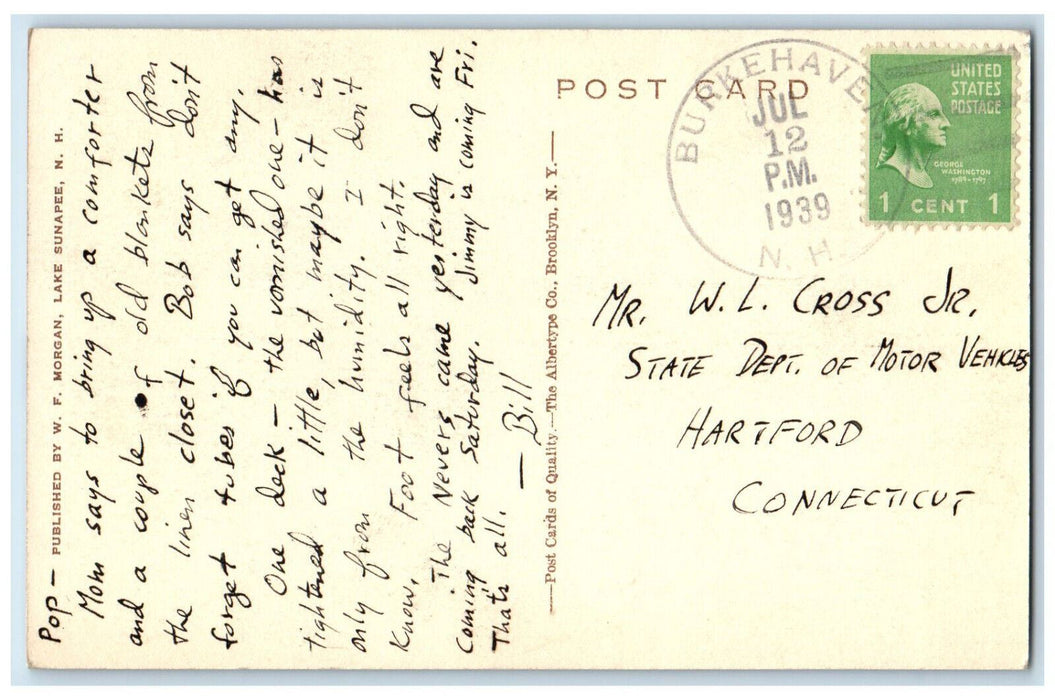 PUBLISHED BY W. F. MORGAN, LAKE SUNAPEE, N. H.
Pop —
Mom says to bring up a comforter
and a couple of old blankets from
the linen closet. Bob says don't
forget tubes if you can get any.
One deck — the varnished one — has
tightened a little, but maybe it is
only from the humidity. I don't
know. Foot feels all right.
The Nevers came yesterday and are
coming back Saturday. Jimmy is coming Fri.
That's all.
— Bill
Post Cards of Quality.—The Albertype Co., Brooklyn, N. Y.
POST CARD
BURKEHAVEN
JUL
12
P.M.
1939
N. H.
UNITED
STATES
POSTAGE
GEORGE
WASHINGTON
1789-1797
1 CENT 1
MR. W. L. CROSS JR.
STATE DEPT. OF MOTOR VEHICLES
HARTFORD
CONNECTICUT